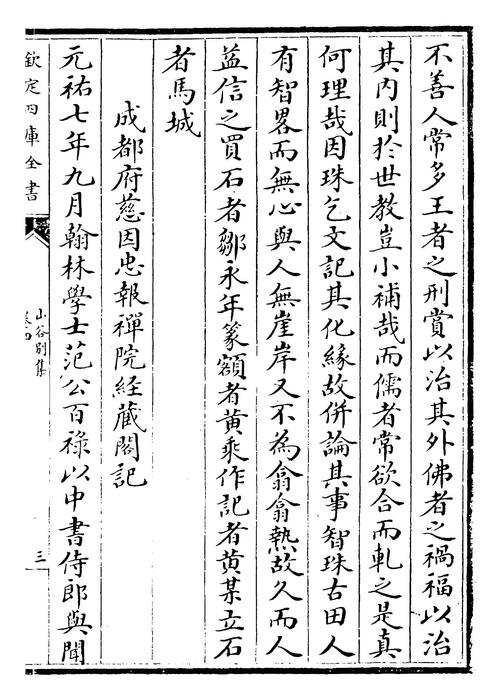 不善人常多王者之刑賞以治其外佛者之禍福以治
其内則於世教豈小補哉而儒者常欲合而軋之是真
何理哉因珠乞文記其化緣故併論其事智珠古田人
有智畧而無心與人無崖岸又不為翕翕熱故久而人
益信之買石者鄒永年篆額者黄乘作記者黄某立石
者馬城
成都府慈因忠報禪院經藏閣記
元祐七年九月翰林學士范公百祿以中書侍郎與聞
欽定四庫全書
山谷别集
卷四
三